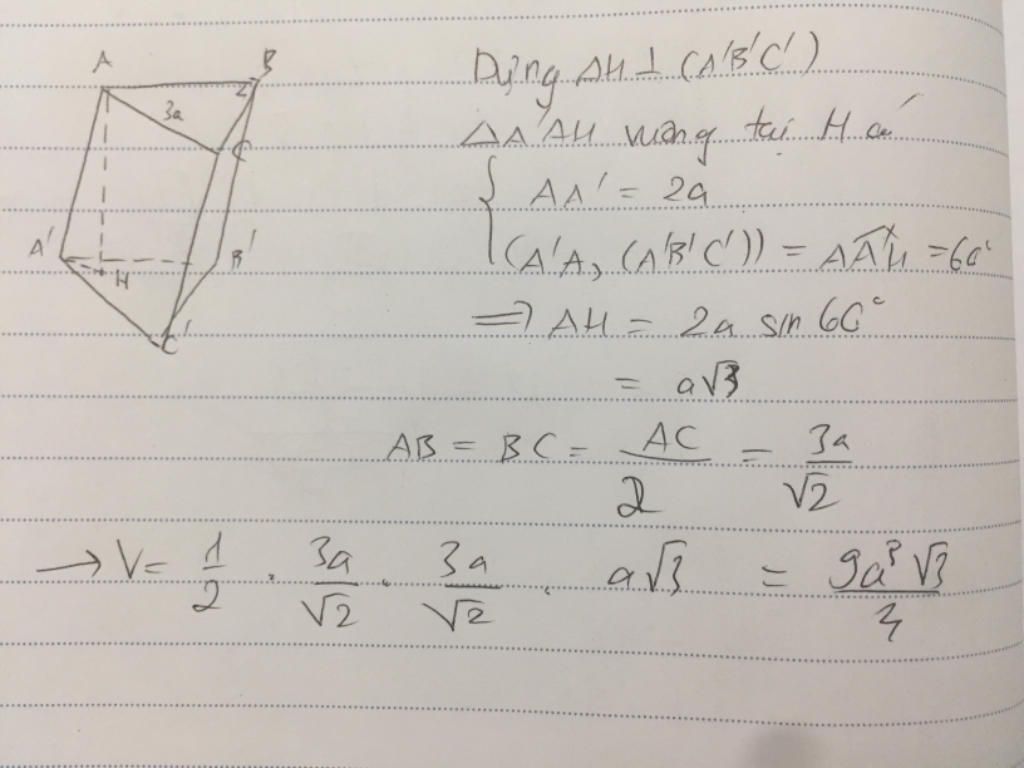 A B
3a
C
A' H B'
C'
Dựng AH ⊥ (A'B'C')
ΔA'AH vuông tại H có
{ AA' = 2a
(A'A, (A'B'C')) = AA'H = 60°
=> AH = 2a sin 60°
= a√3
AB = BC = AC/2 = 3a/√2
→ V = 1/2 . 3a/√2 . 3a/√2 . a√3 = 9a³√3/4